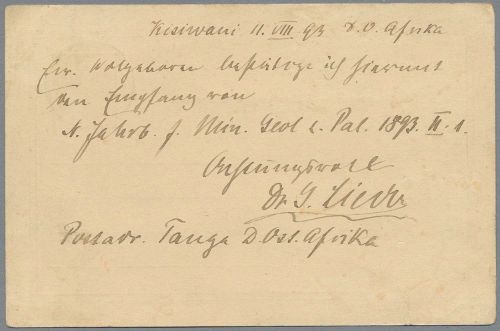 Kisiwani 11. VIII 93 D. O. Afrika
Ew. Wolgeboren bestätige ich hiermit
den Empfang von
N. Jahrb. f. Min. Geol. u. Pal. 1893. II. 1.
Achtungsvoll
Dr. G. Lieder
Postadr. Tanga D. Ost. Afrika